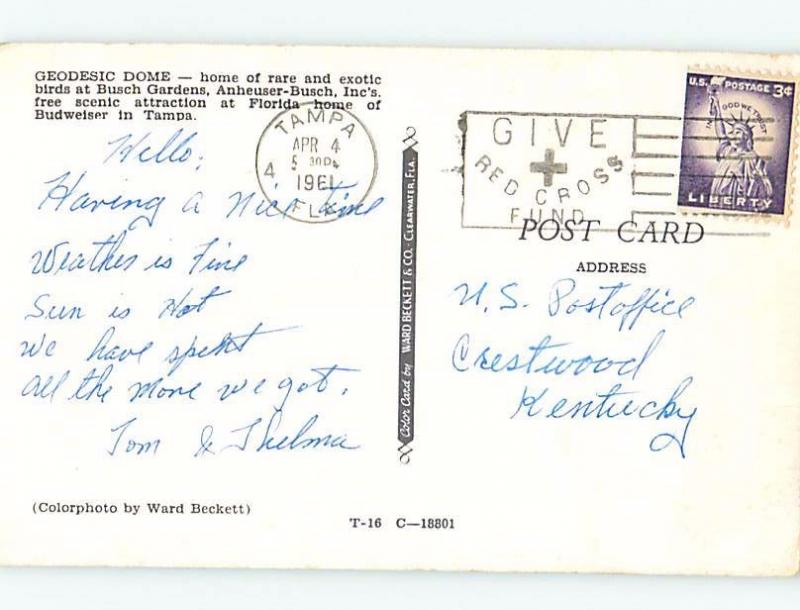 GEODESIC DOME — home of rare and exotic
birds at Busch Gardens, Anheuser-Busch, Inc's.
free scenic attraction at Florida home of
Budweiser in Tampa.
Hello;
Having a nice time
Weather is Fine
Sun is Hot
We have spent
all the more we got.
Tom & Thelma
(Colorphoto by Ward Beckett)
TAMPA
APR 4
5 30PM
4
1961
FLA
Color Card by WARD BECKETT & CO. CLEARWATER, FLA.
GIVE
RED CROSS
FUND
U.S. POSTAGE 3¢
IN GOD WE TRUST
LIBERTY
POST CARD
ADDRESS
U.S. Postoffice
Crestwood
Kentucky
T-16 C—18801